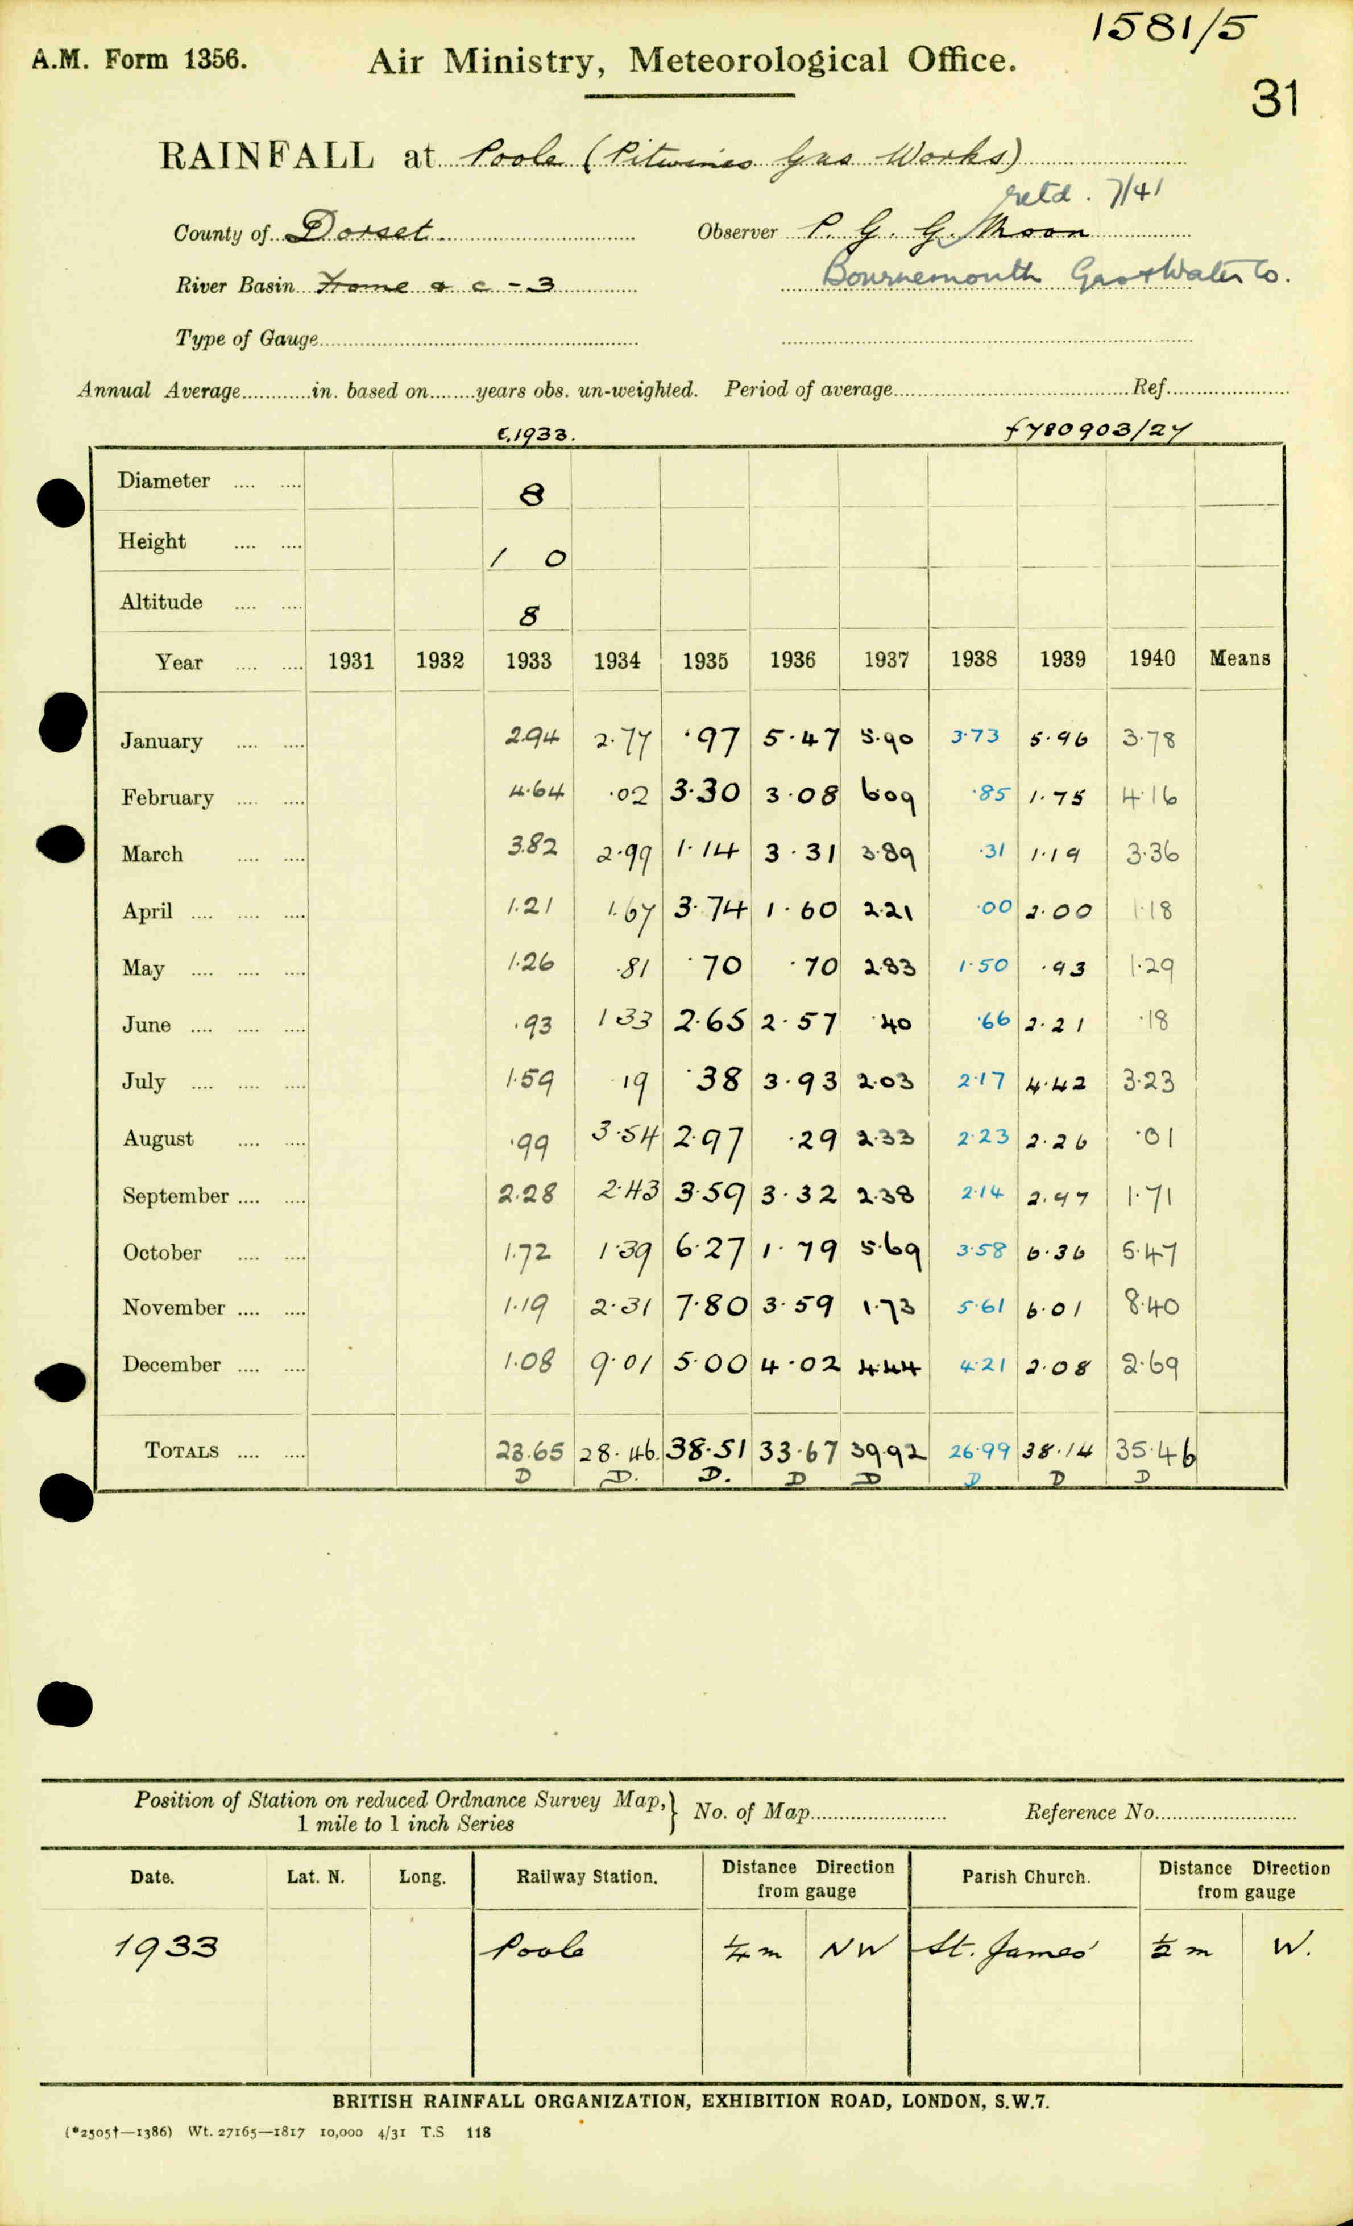 1581/5
A.M. Form 1356. Air Ministry, Meteorological Office.
31
RAINFALL at Poole (Pitwines Gas Works)
retd. 7/41
County of Dorset Observer P. G. G. Moon
River Basin Frome & c - 3 Bournemouth Gas & Water Co.
Type of Gauge
Annual Average in. based on years obs. un-weighted. Period of average Ref.
E.1933. f780903/27
Diameter 8
Height 1 0
Altitude 8
Year 1931 1932 1933 1934 1935 1936 1937 1938 1939 1940 Means
January 2.94 2.77 .97 5.47 5.90 3.73 5.96 3.78
February 4.64 .02 3.30 3.08 6.09 .85 1.75 4.16
March 3.82 2.99 1.14 3.31 3.89 .31 1.19 3.36
April 1.21 1.67 3.74 1.60 2.21 .00 2.00 1.18
May 1.26 .81 .70 .70 2.83 1.50 .93 1.29
June .93 1.33 2.65 2.57 .40 .66 2.21 .18
July 1.59 .19 .38 3.93 2.03 2.17 4.42 3.23
August .99 3.54 2.97 .29 2.33 2.23 2.26 .01
September 2.28 2.43 3.59 3.32 2.38 2.14 2.97 1.71
October 1.72 1.39 6.27 1.79 5.69 3.58 6.36 5.47
November 1.19 2.31 7.80 3.59 1.73 5.61 6.01 8.40
December 1.08 9.01 5.00 4.02 4.44 4.21 2.08 2.69
TOTALS 23.65 28.46 38.51 33.67 39.92 26.99 38.14 35.46
D D. D. D D D D D
Position of Station on reduced Ordnance Survey Map, } No. of Map Reference No.
1 mile to 1 inch Series
Date. Lat. N. Long. Railway Station. Distance Direction from gauge Parish Church. Distance Direction from gauge
1933 Poole ¼ m NW St. James' ½ m W.
BRITISH RAINFALL ORGANIZATION, EXHIBITION ROAD, LONDON, S.W.7.
(*2505†—1386) Wt. 27165—1817 10,000 4/31 T.S 118